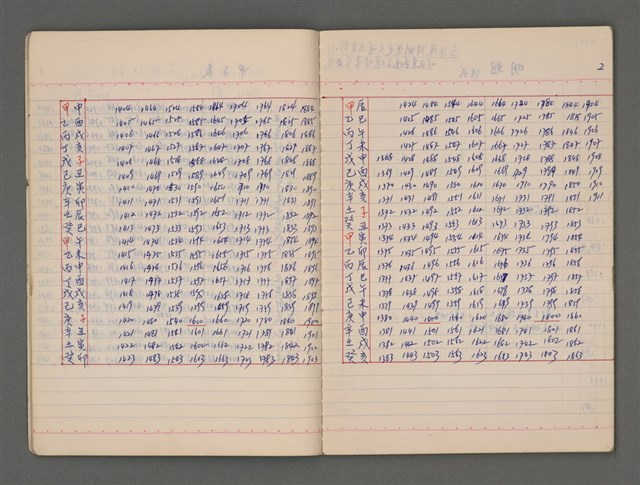 甲申 1404 1464 1524 1584 1644 1704 1764 1824 1884
乙酉 1405 1465 1525 1585 1645 1705 1765 1825 1885
丙戌 1406 1466 1526 1586 1646 1706 1766 1826 1886
丁亥 1407 1467 1527 1587 1647 1707 1767 1827 1887
戊子 1408 1468 1528 1588 1648 1708 1768 1828 1888
己丑 1409 1469 1529 1589 1649 1709 1769 1829 1889
庚寅 1410 1470 1530 1590 1650 1710 1770 1830 1890
辛卯 1411 1471 1531 1591 1651 1711 1771 1831 1891
壬辰 1412 1472 1532 1592 1652 1712 1772 1832 1892
癸巳 1413 1473 1533 1593 1653 1713 1773 1833 1893
甲午 1414 1474 1534 1594 1654 1714 1774 1834 1894
乙未 1415 1475 1535 1595 1655 1715 1775 1835 1895
丙申 1416 1476 1536 1596 1656 1716 1776 1836 1896
丁酉 1417 1477 1537 1597 1657 1717 1777 1837 1897
戊戌 1418 1478 1538 1598 1658 1718 1778 1838 1898
己亥 1419 1479 1539 1599 1659 1719 1779 1839 1899
庚子 1420 1480 1540 1600 1660 1720 1780 1840 1900
辛丑 1421 1481 1541 1601 1661 1721 1781 1841 1901
壬寅 1422 1482 1542 1602 1662 1722 1782 1842 1902
癸卯 1423 1483 1543 1603 1663 1723 1783 1843 1903
2
甲辰 1424 1484 1544 1604 1664 1724 1784 1844 1904
乙巳 1425 1485 1545 1605 1665 1725 1785 1845 1905
丙午 1426 1486 1546 1606 1666 1726 1786 1846 1906
丁未 1427 1487 1547 1607 1667 1727 1787 1847 1907
戊申 1368 1428 1488 1548 1608 1668 1728 1788 1848 1908
己酉 1369 1429 1489 1549 1609 1669 1729 1789 1849 1909
庚戌 1370 1430 1490 1550 1610 1670 1730 1790 1850 1910
辛亥 1371 1431 1491 1551 1611 1671 1731 1791 1851 1911
壬子 1372 1432 1492 1552 1612 1672 1732 1792 1852
癸丑 1373 1433 1493 1553 1613 1673 1733 1793 1853
甲寅 1374 1434 1494 1554 1614 1674 1734 1794 1854
乙卯 1375 1435 1495 1555 1615 1675 1735 1795 1855
丙辰 1376 1436 1496 1556 1616 1676 1736 1796 1856
丁巳 1377 1437 1497 1557 1617 1677 1737 1797 1857
戊午 1378 1438 1498 1558 1618 1678 1738 1798 1858
己未 1379 1439 1499 1559 1619 1679 1739 1799 1859
庚申 1380 1440 1500 1560 1620 1680 1740 1800 1860
辛酉 1381 1441 1501 1561 1621 1681 1741 1801 1861
壬戌 1382 1442 1502 1562 1622 1682 1742 1802 1862
癸亥 1383 1443 1503 1563 1623 1683 1743 1803 1863